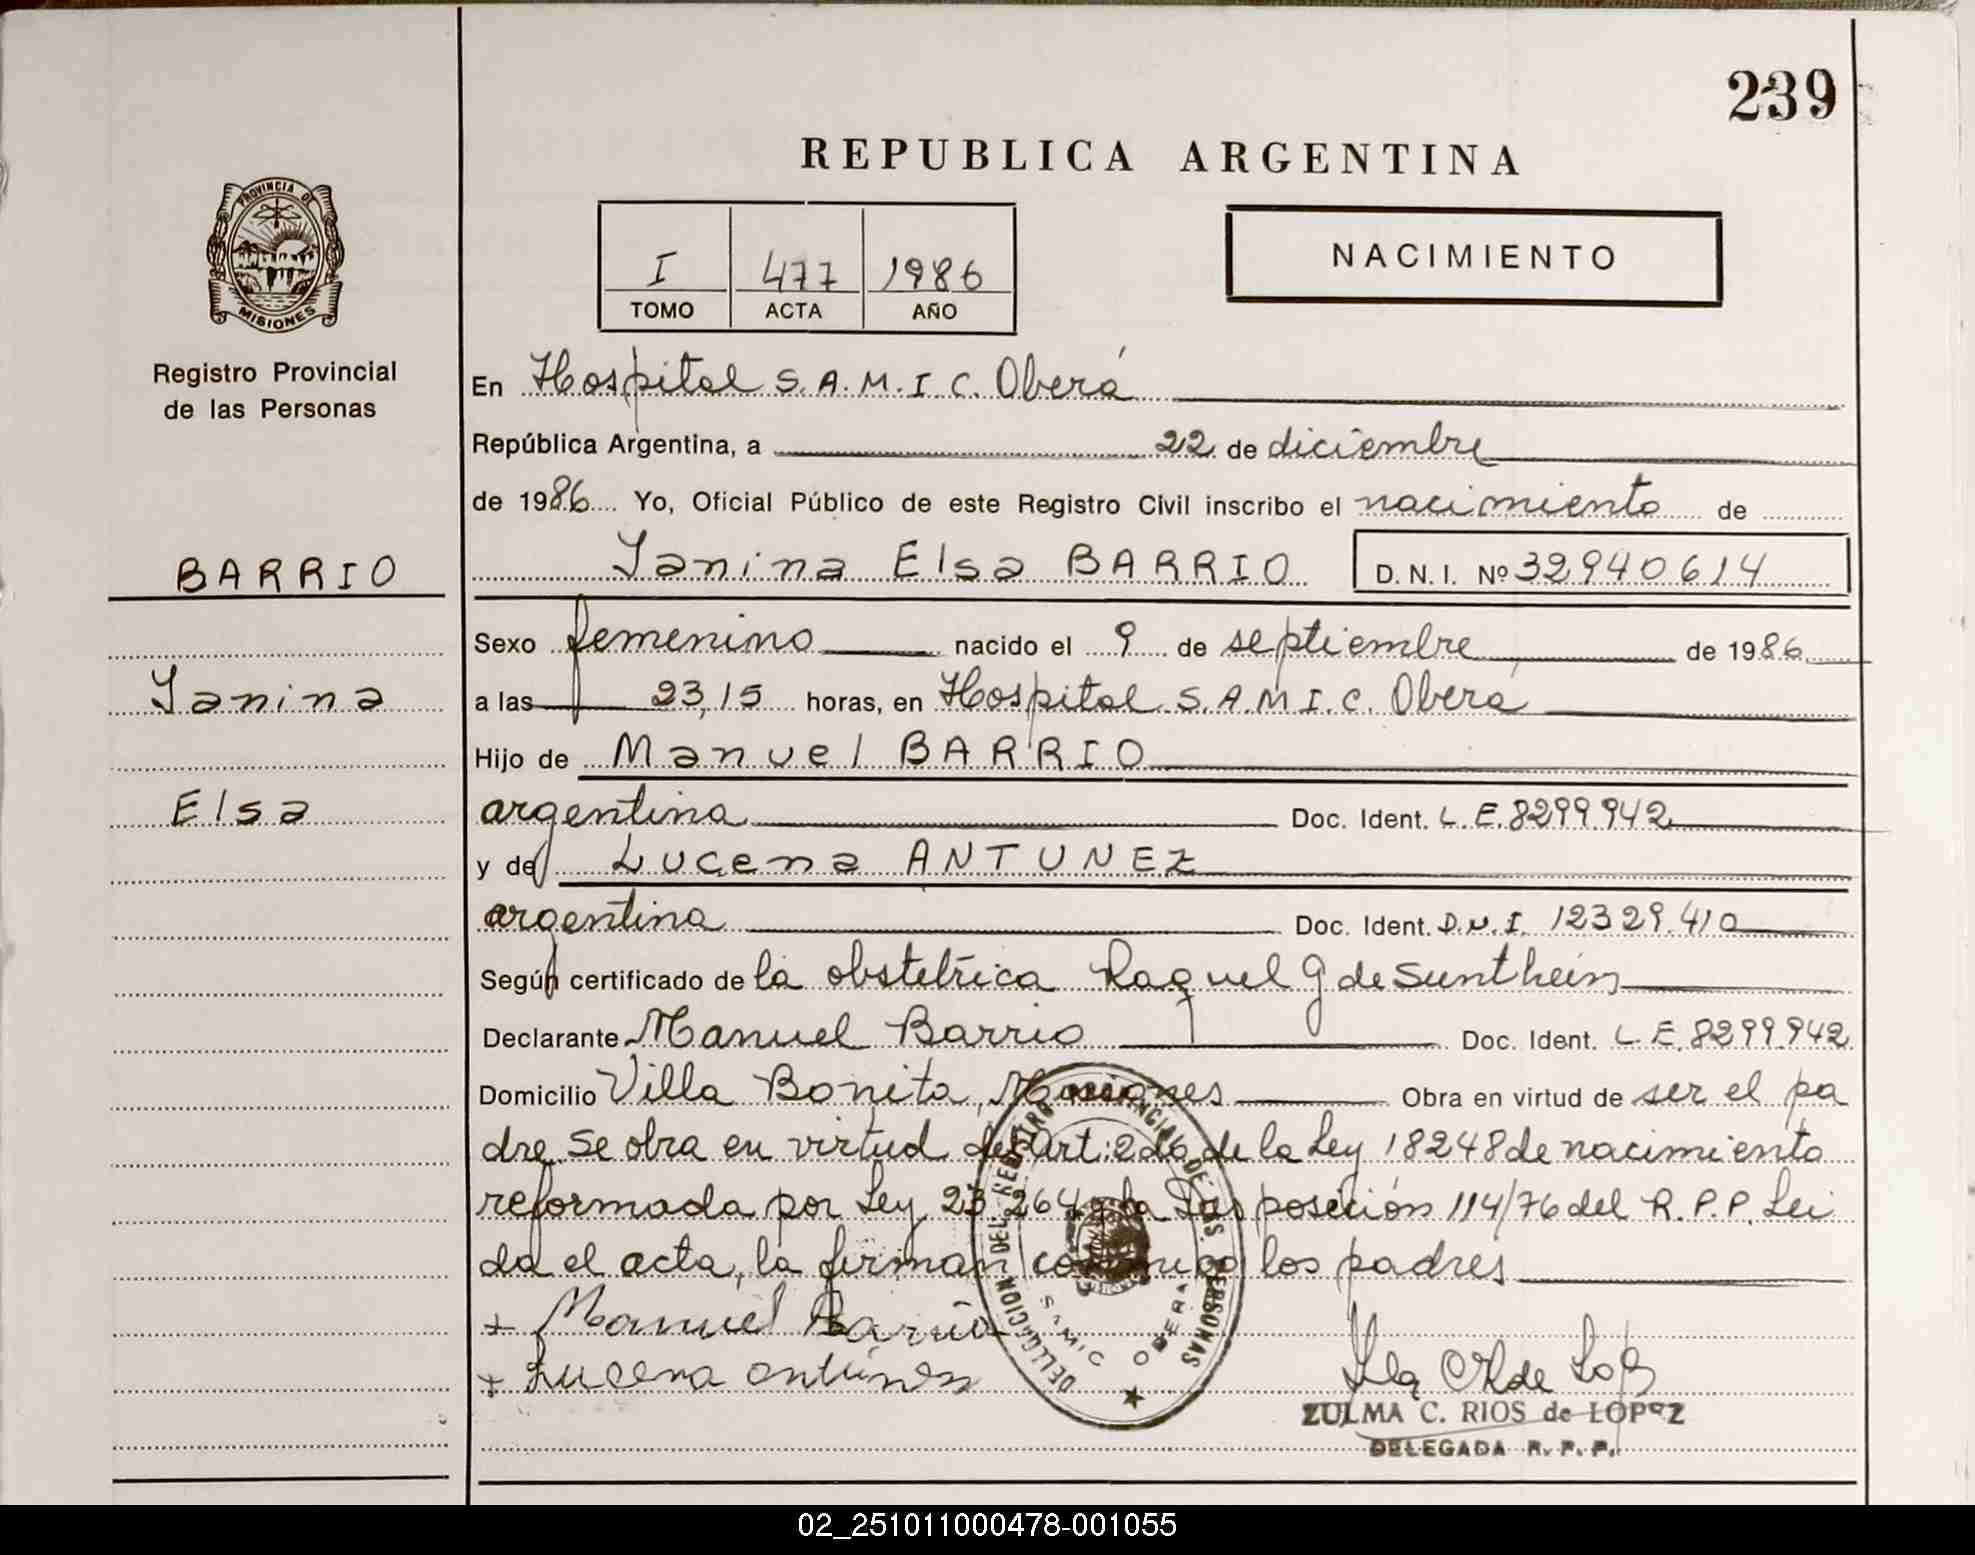 239
REPUBLICA ARGENTINA
PROVINCIA DE
MISIONES
Registro Provincial
de las Personas
I 477 1986
TOMO ACTA AÑO
NACIMIENTO
En Hospital S.A.M.I.C. Oberá
República Argentina, a 22 de diciembre
de 1986 Yo, Oficial Público de este Registro Civil inscribo el nacimiento de
BARRIO
Yanina Elsa BARRIO D.N.I. Nº 32940614
Sexo femenino nacido el 9 de septiembre de 1986
Yanina
a las 23,15 horas, en Hospital S.A.M.I.C. Oberá
Hijo de Manuel BARRIO
Elsa
argentina Doc. Ident. L.E. 8299.942
y de Lucena ANTUNEZ
argentina Doc. Ident. D.N.I. 12329.410
Según certificado de la obstetrica Raquel G de Sunthein
Declarante Manuel Barrio Doc. Ident. L.E. 8299.942
Domicilio Villa Bonita, Misiones Obra en virtud de ser el pa
dre. Se obra en virtud del Art: 2do de la Ley 18248 de nacimiento
reformada por Ley 23264 y la Disposición 114/76 del R.P.P. Lei
da el acta, la firman conmigo los padres
+ Manuel Barrio
+ Lucena antúnes
DELEGACION DEL REGISTRO PROVINCIAL DE LAS PERSONAS
SAMIC OBERA
ZULMA C. RIOS de LOPEZ
DELEGADA R. P. P.
02_251011000478-001055